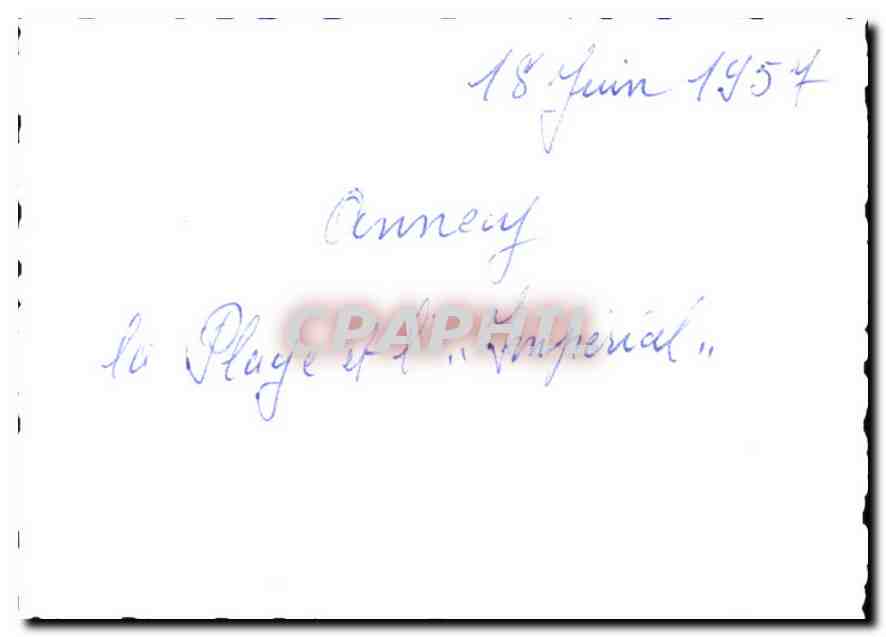 18 Juin 1957
Annecy
la Plage et l' "Impérial"
CPAPHIL